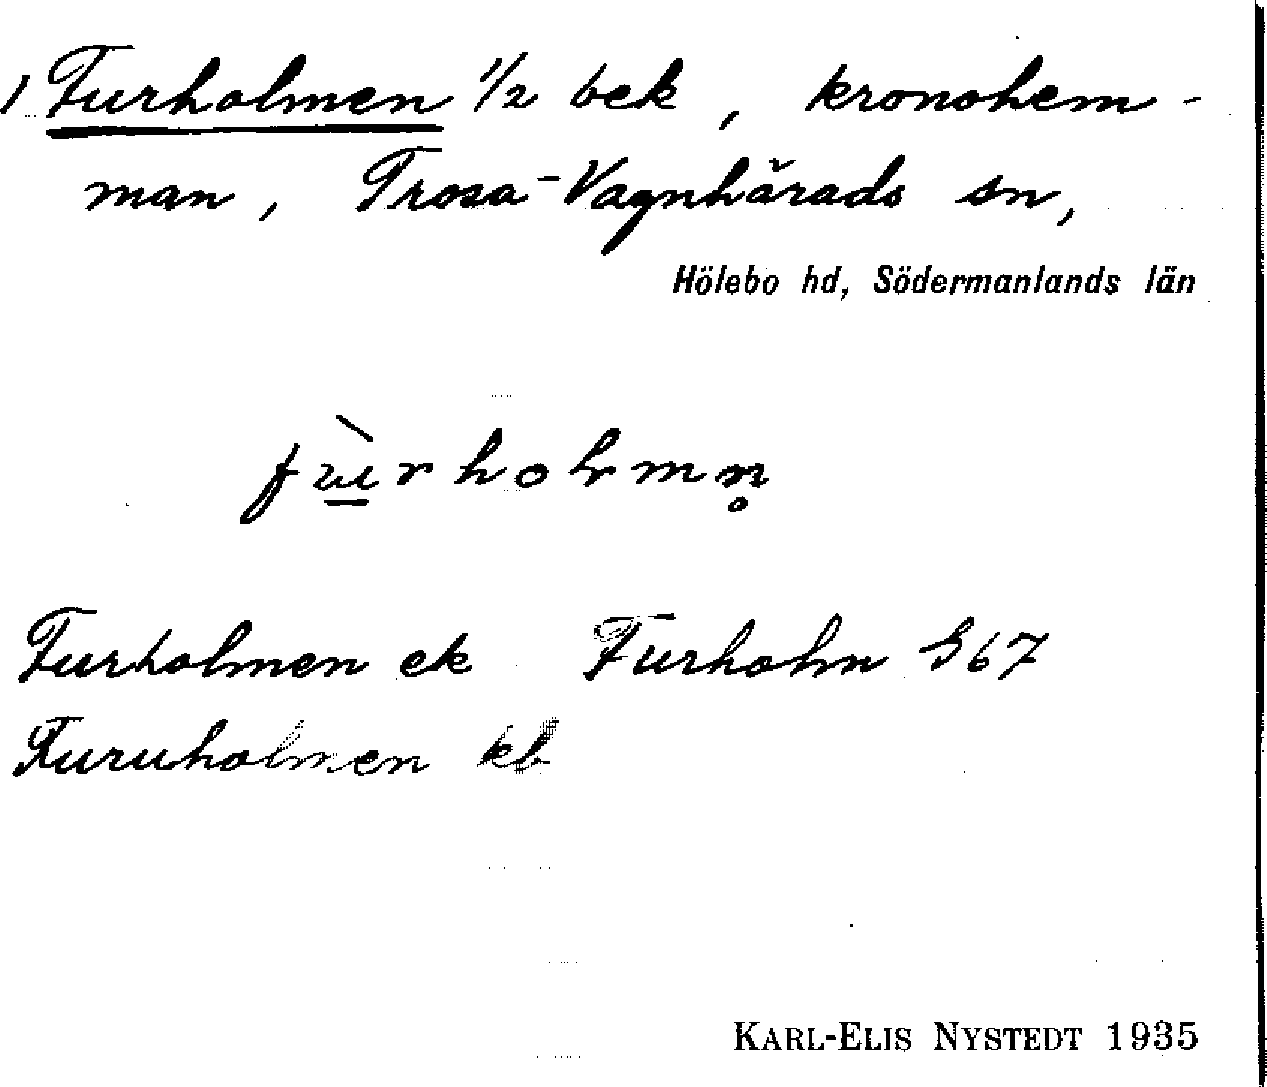 1 Furholmen 1/2 bek, kronohem-
man, Trosa-Vagnhärads sn,
Hölebo hd, Södermanlands län
fùrholmn̥
Furholmen ek Furholm G67
Furuholmen kb
KARL-ELIS NYSTEDT 1935